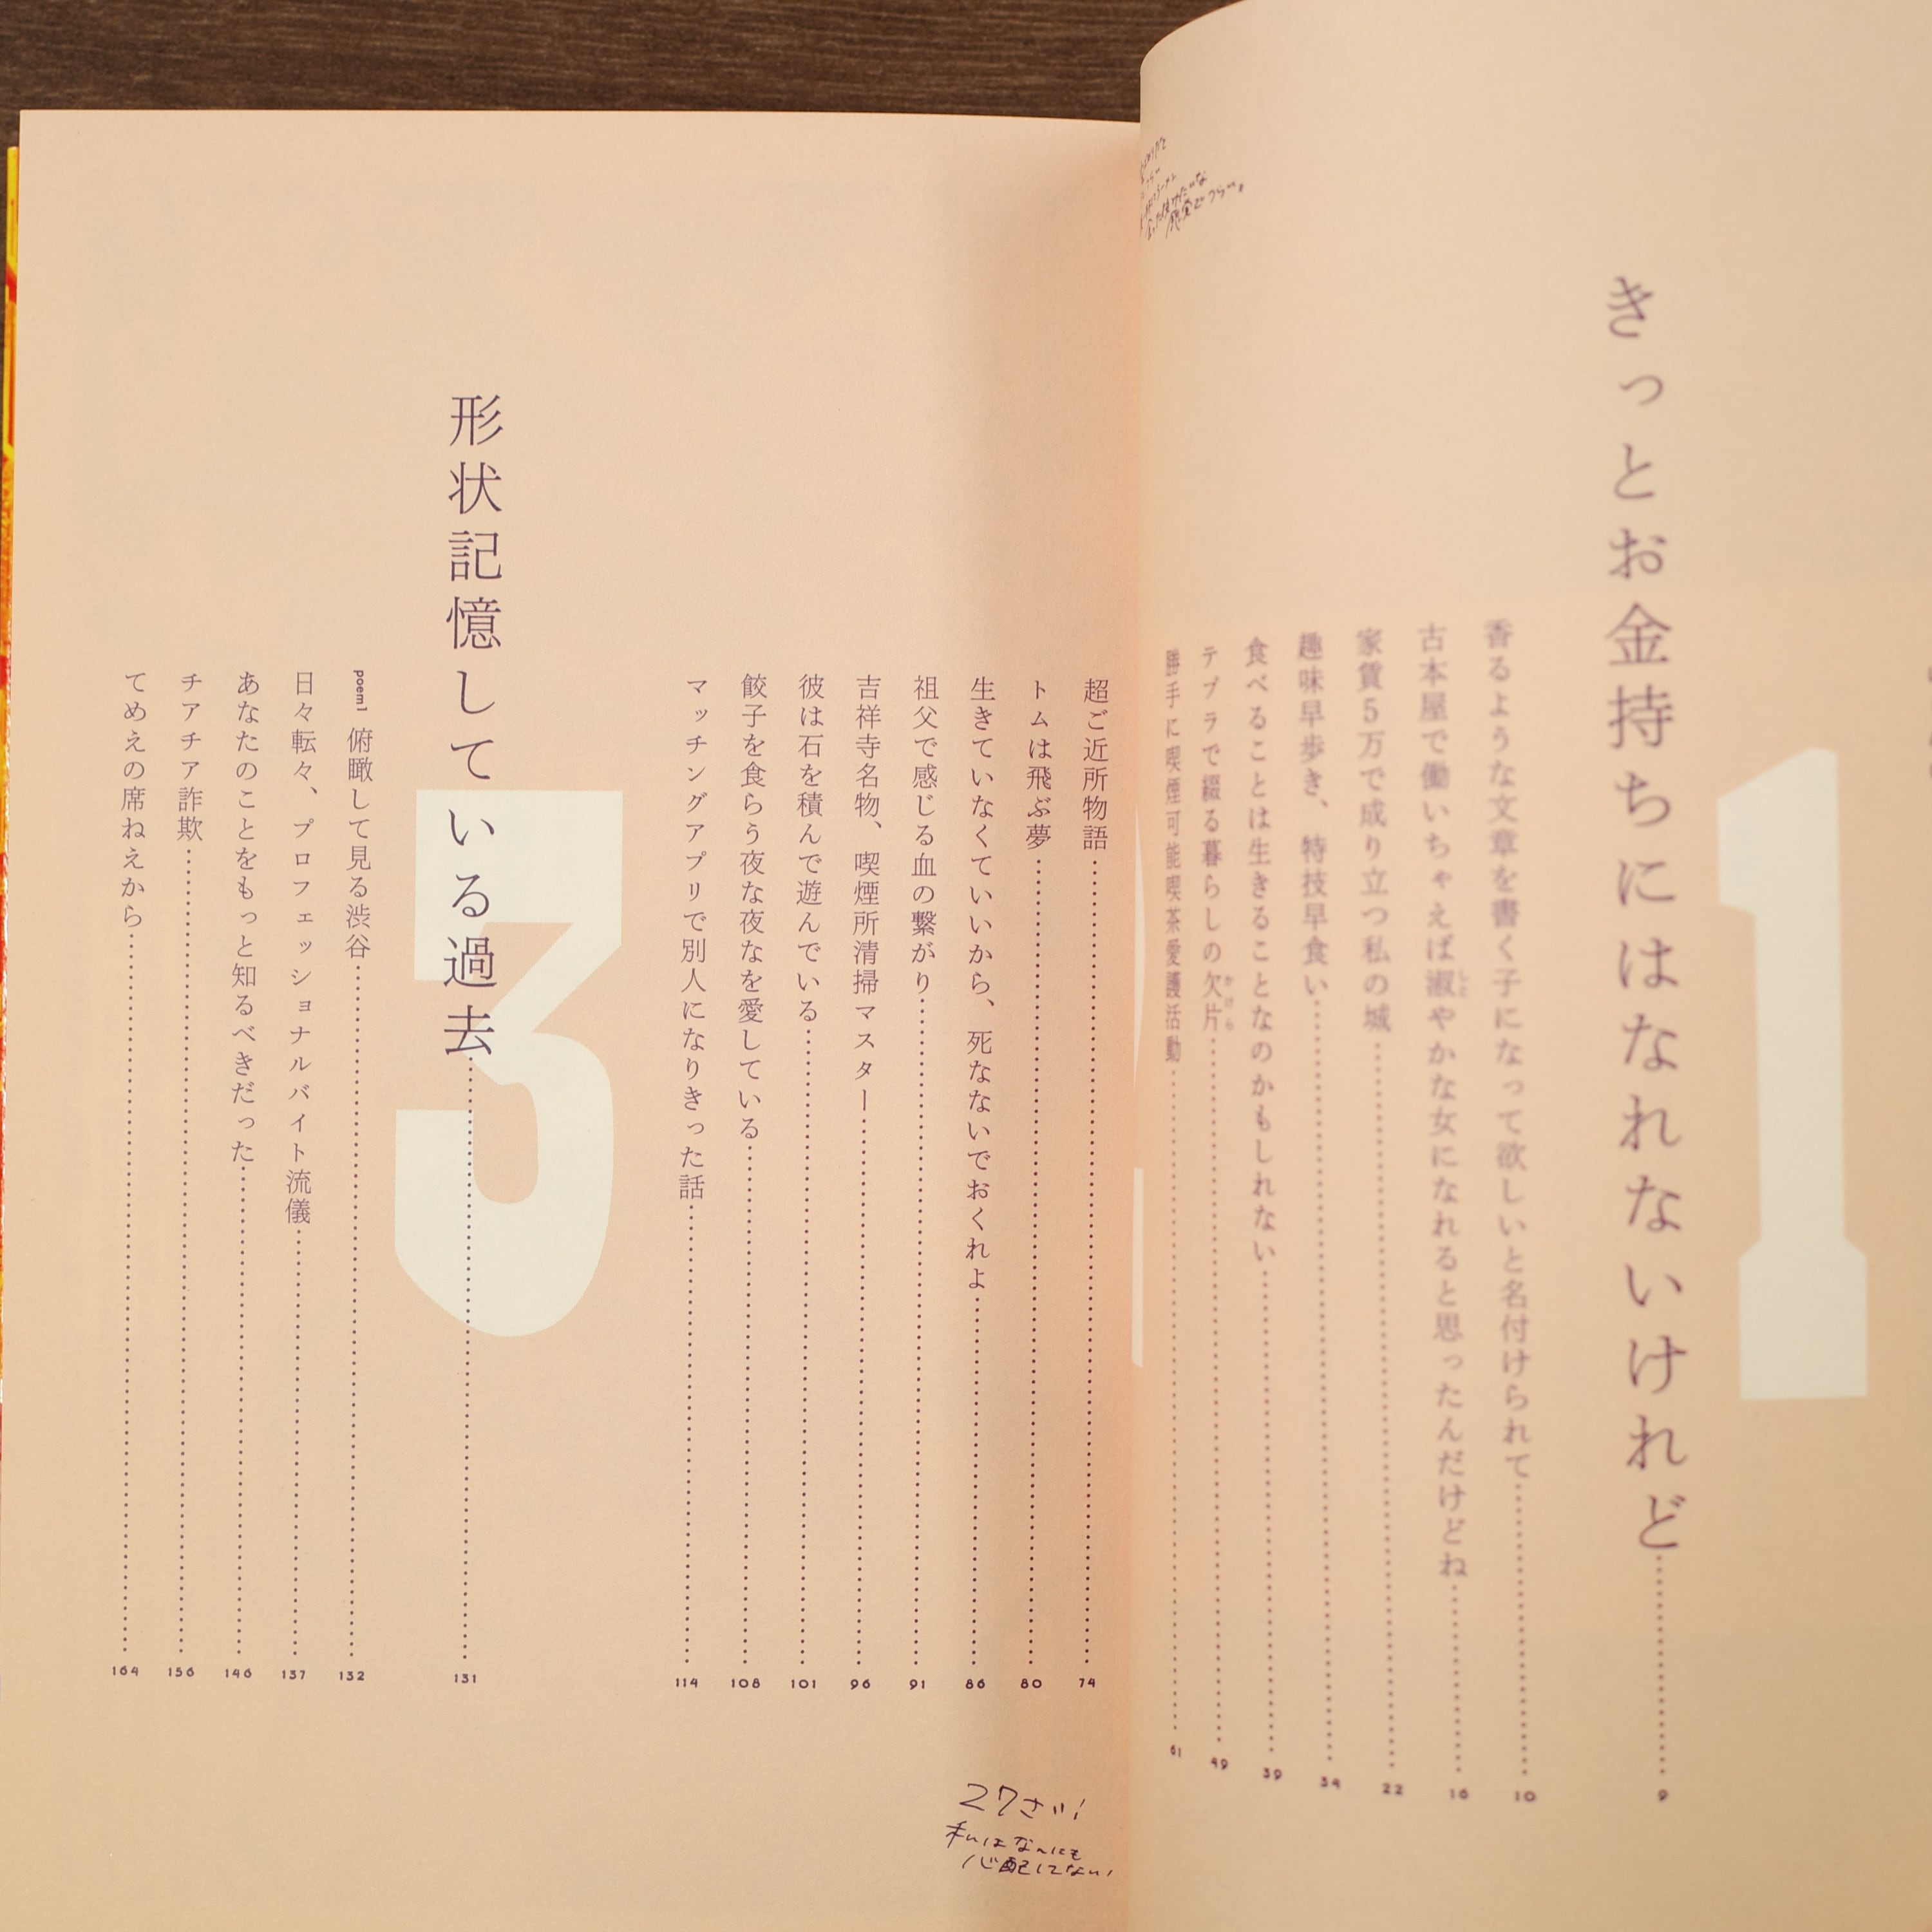 1
きっとお金持ちにはなれないけれど 9
香るような文章を書く子になって欲しいと名付けられて 10
古本屋で働いちゃえば淑やかな女になれると思ったんだけどね 16
しと
家賃5万で成り立つ私の城 22
趣味早歩き、特技早食い 34
食べることは生きることなのかもしれない 39
テプラで綴る暮らしの欠片 49
かけら
勝手に喫煙可能喫茶愛護活動 61
超ご近所物語 74
トムは飛ぶ夢 80
生きていなくていいから、死なないでおくれよ 86
祖父で感じる血の繋がり 91
吉祥寺名物、喫煙所清掃マスター 96
彼は石を積んで遊んでいる 101
餃子を食らう夜な夜なを愛している 108
マッチングアプリで別人になりきった話 114
3
形状記憶している過去 131
poem1 俯瞰して見る渋谷 132
日々転々、プロフェッショナルバイト流儀 137
あなたのことをもっと知るべきだった 146
チアチア詐欺 156
てめえの席ねえから 164
27さい!
私はなんにも
心配してない!